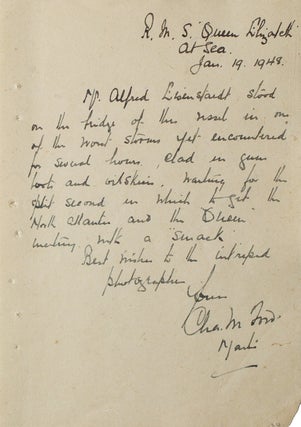 R. M. S. "Queen Elizabeth"
At Sea.
Jan. 19. 1948.
Mr. Alfred Eisenstaedt stood
on the bridge of this vessel in one
of the worst storms yet encountered
for several hours, clad in gum
boots and oilskins, waiting for the
split second in which to get the
North Atlantic and the Queen
meeting with a "smack"
Best wishes to the intrepid
photographer
Yours
Chas. M. Ford